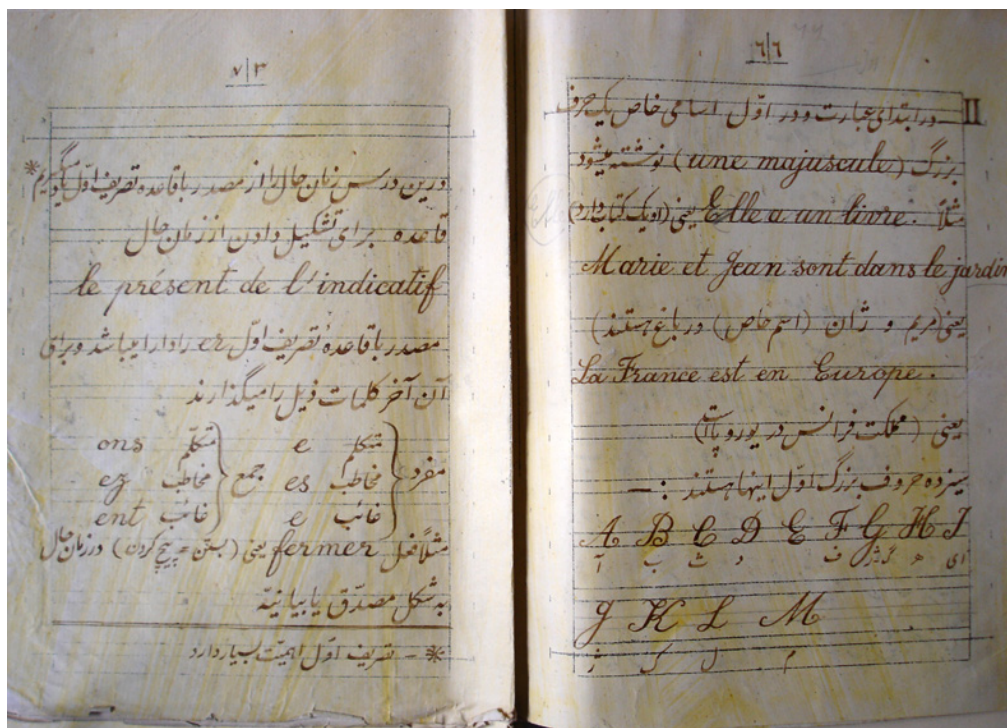 ٦|٦
II در ابتدای عبارت و در اوّل اسامی خاص یک حرف
بزرگ (une majuscule) نوشته میشود
مثلاً Elle a un livre. یعنی (او یک کتاب دارد)
Marie et Jean sont dans le jardin
یعنی (مریم و ژان (اسم خاص) در باغ هستند)
La France est en Europe.
یعنی (مملکت فرانس در یوروپا است)
سیزده حروف بزرگ اوّل اینها هستند :—
A B C D E F G H I
آ ب ث د ف گ ژ ه ای
J K L M
ژ ک ل م
٧|٣
درین درس زمان حال را از مصدر باقاعده تصریف اوّل یاد میگیریم*
قاعده برای تشکیل دادن از زمان حال
le présent de l'indicatif
مصدر باقاعدهٔ تصریف اوّل er را دارا میباشد و برای
آن آخر کلمات ذیل را میگذارند
متکلم e متکلّم ons
مفرد مخاطب es جمع مخاطب ez
غائب e غائب ent
مثلاً فعل fermer یعنی (بستن = پیچ کردن) در زمان حال
به شکل مصدّق یا بیانیّه
* — تصریف اوّل اهمیّت بسیار دارد